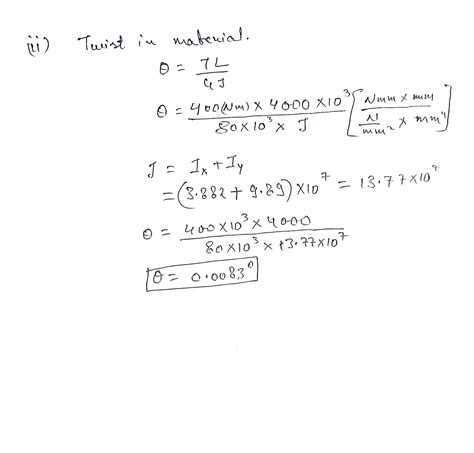 (ii) Twist in material.
θ = TL / GJ
θ = 400(Nm) × 4000 × 10³ / 80×10³ × J [Nmm × mm / N/mm² × mm⁴]
J = Ix + Iy
= (3.882 + 9.89) × 10⁷ = 13.77×10⁷
θ = 400×10³ × 4000 / 80×10³ × 13.77×10⁷
θ = 0.0083°